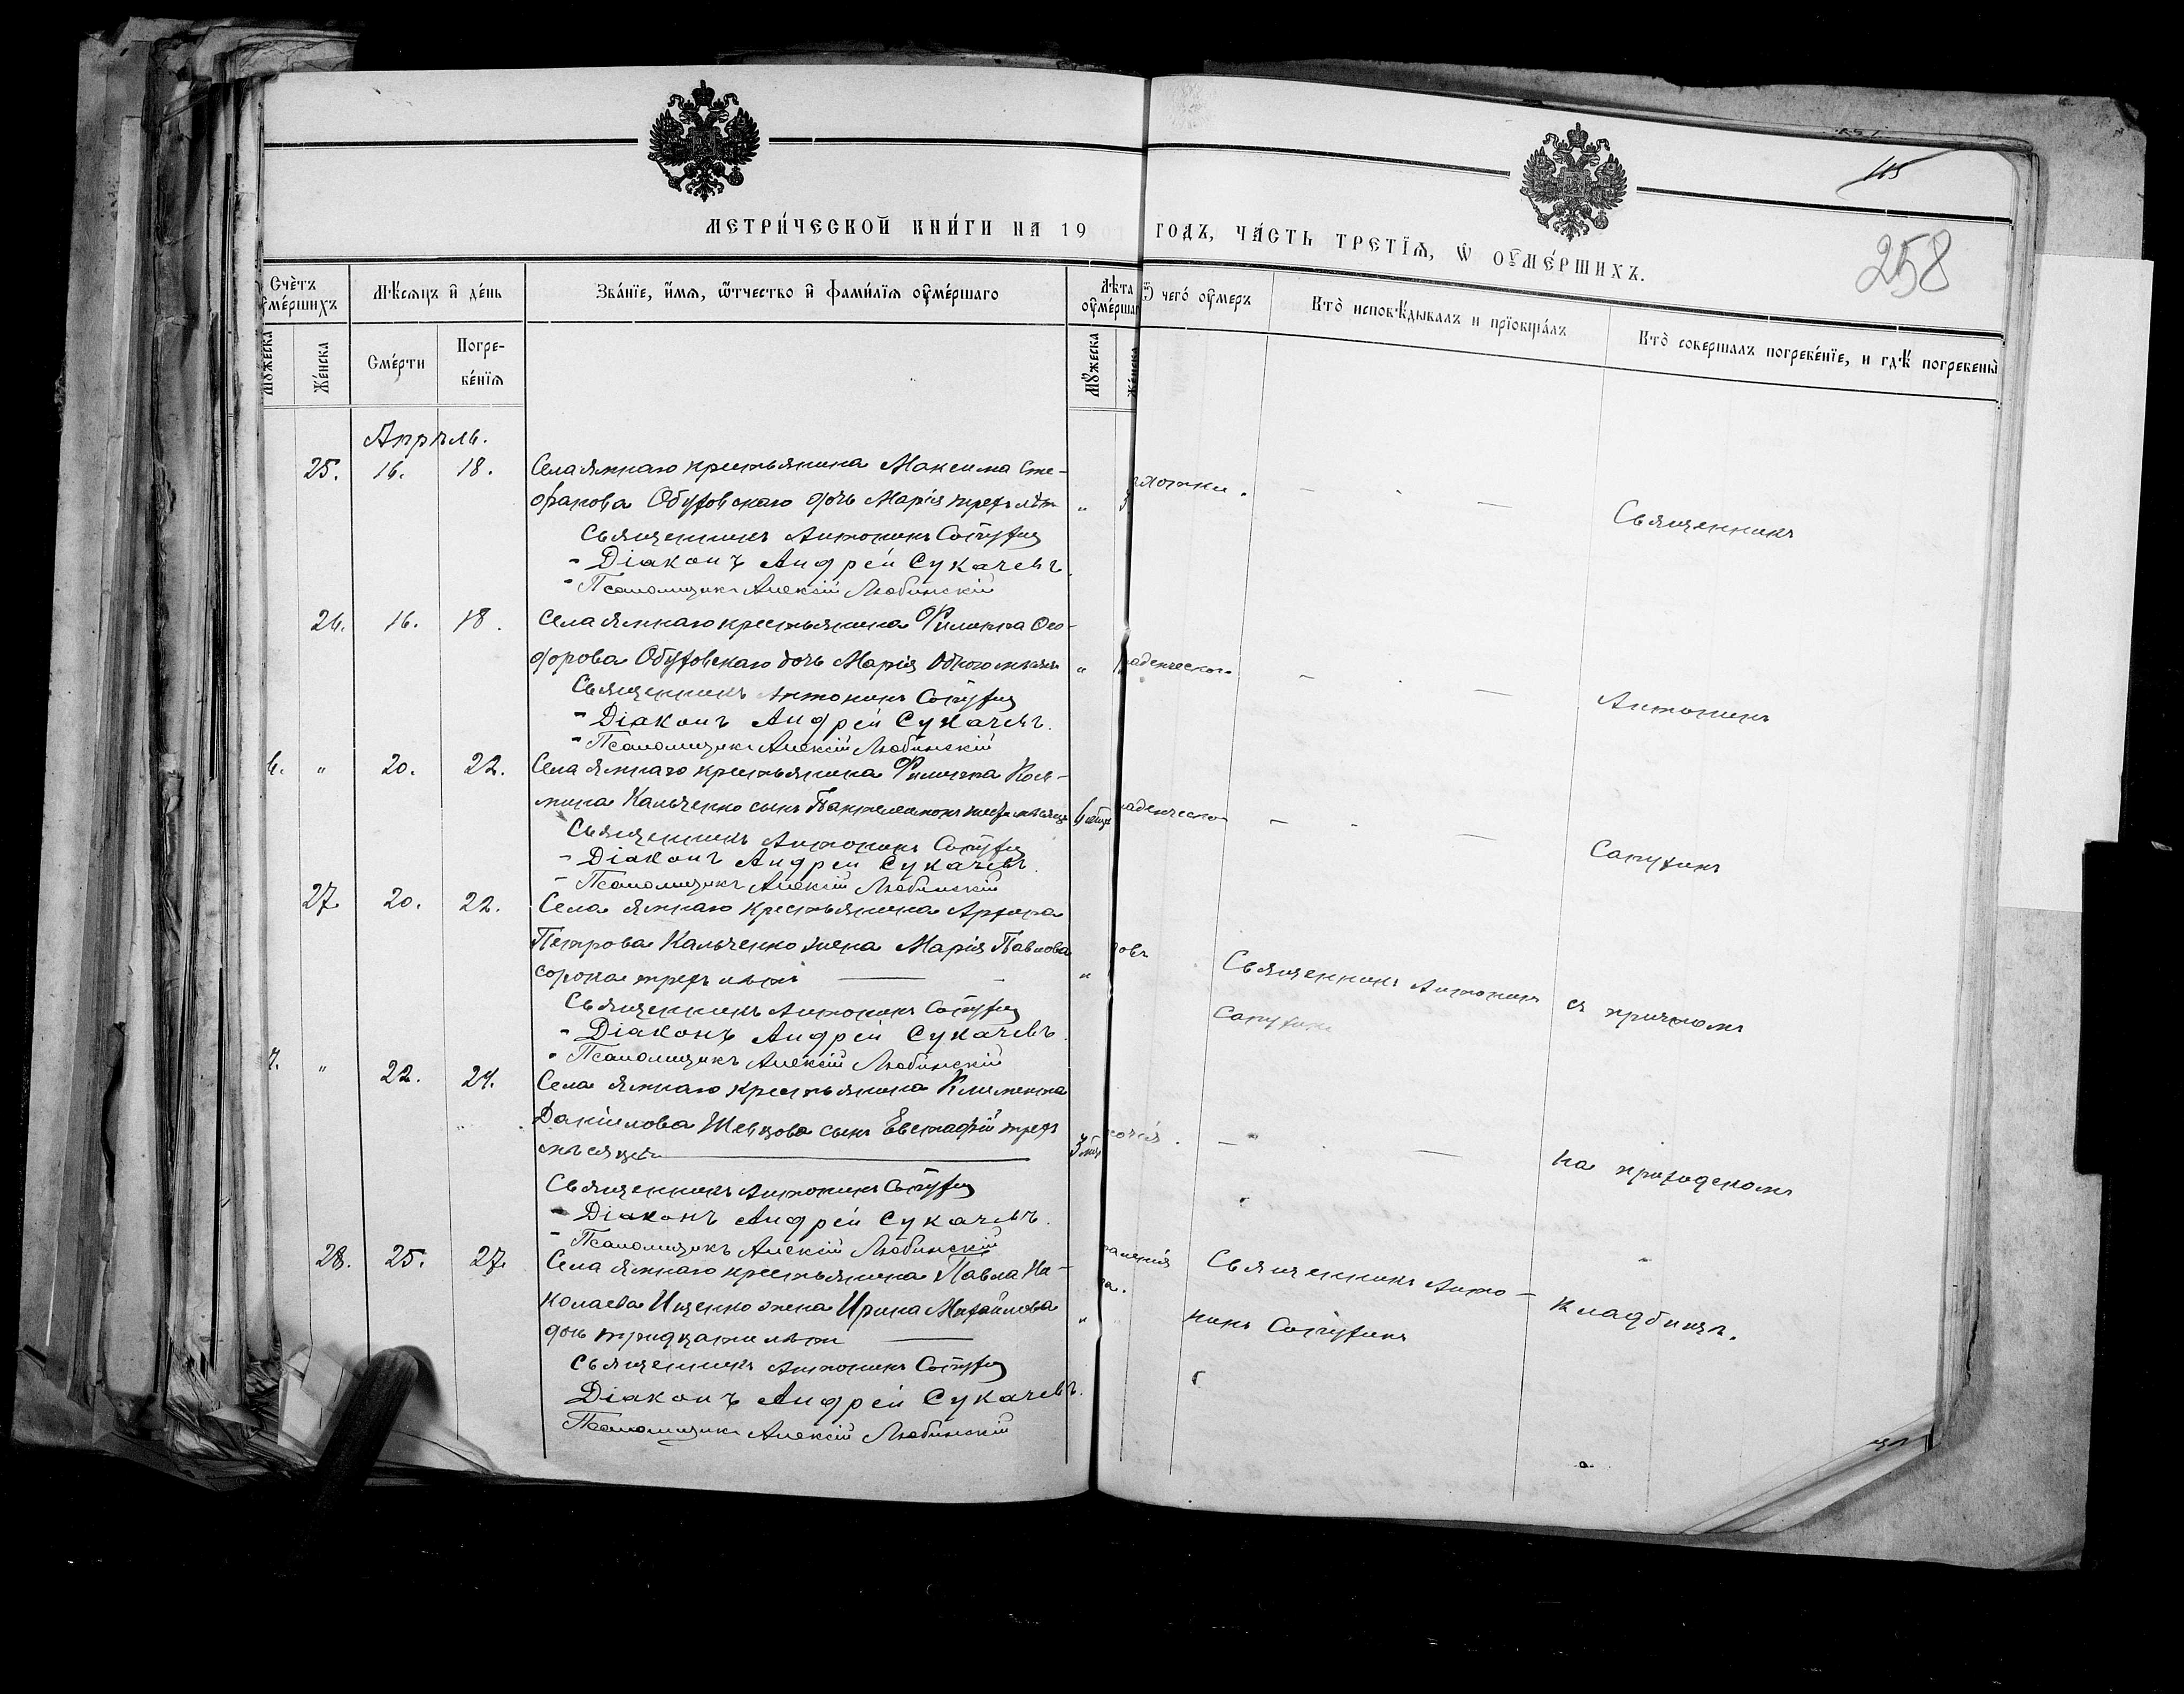 115
258
МЕТРИ́ЧЕСКОЙ КНИ́ГИ НА 19 ГОДЪ, ЧА́СТЬ ТРЕТЇѦ, Ѡ ОУМЕ́РШИХЪ.
Счѐтъ оумѐршихъ
Мꙋжеска
Же́нска
Мѣ́сѧцъ и҆ де́нь
Сме́рти
Погре-
бе́нїѧ
Зва́нїе, и҆́мѧ, ѻ҆́тчество и҆ фами́лїѧ оу҆ме́ршаго
Лѣ́та
оу҆ме́ршаго
Мꙋ́жеска
Же́нска
Ѿ чего́ оу҆́меръ
Кто̀ исповѣ́дывалъ и прїобща́лъ
Кто̀ совершалъ погребе́нїе, и гдѣ̀ погребены̀
Апрѣль.
25. 16. 18. Села Ямнаго крестьянина Максима Сте-
фанова Обуховскаго дочь Марія трехъ лѣтъ "
Священникъ Антонинъ Сапухин
- Діаконъ Андрей Сукачевъ.
- Псаломщикъ Алексій Любинскій
Священникъ
26. 16. 18. Села Ямнаго крестьянина Филиппа Ѳео-
дорова Обуховскаго дочь Марія одного мѣсяца "
Священникъ Антонинъ Сапухин
- Діаконъ Андрей Сукачевъ.
- Псаломщикъ Алексій Любинскій
Антонинъ
6. " 20. 22. Села Ямнаго крестьянина Филиппа Козь-
мина Кальченко сынъ Пантелеимонъ шести мѣсяцевъ
Священникъ Антонинъ Сапухин
- Діаконъ Андрей Сукачевъ.
- Псаломщикъ Алексій Любинскій
Сапухинъ
27. 20. 22. Села Ямнаго крестьянина Архипа
Петрова Кальченко жена Марія Павлова
сорока трехъ лѣтъ "
Священникъ Антонинъ Сапухин
- Діаконъ Андрей Сукачевъ.
- Псаломщикъ Алексій Любинскій
Священникъ Антонинъ
Сапухинъ
съ причтомъ
7. " 22. 24. Села Ямнаго крестьянина Климента
Даніилова Шевцова сынъ Евстафій трехъ
мѣсяцевъ
Священникъ Антонинъ Сапухин
- Діаконъ Андрей Сукачевъ.
- Псаломщикъ Алексій Любинскій
на приходскомъ
28. 25. 27. Села Ямнаго крестьянина Павла Ни-
колаева Ищенко жена Ирина Михайлова
дочь тридцати лѣтъ "
Священникъ Антонинъ Сапухин
Діаконъ Андрей Сукачевъ.
Псаломщикъ Алексій Любинскій
Священникъ Анто-
нинъ Сапухинъ
кладбищѣ.